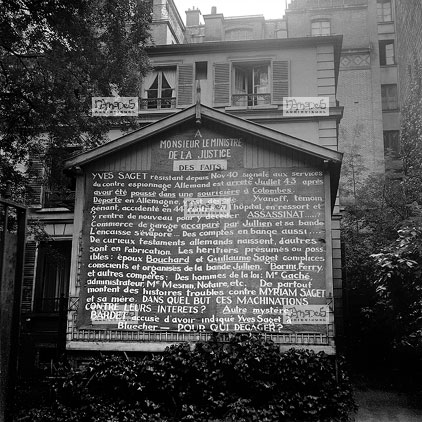 A
MONSIEUR LE MINISTRE
DE LA JUSTICE
DES FAITS
YVES SAGET résistant depuis Nov 40 signalé aux services
du contre espionnage Allemand est arrêté Juillet 43 après
avoir été poussé dans une souricière à Colombes.
Déporté en Allemagne, Yvanoff, témoin
gênant, accidenté en 44 hôpital, en ressort et
y rentre de nouveau pour y ASSASSINAT....
Commerce de garage accaparé par Jullien et sa bande
L'encaisse s'évapore.. Des comptes en banque aussi.
De curieux testaments allemands naissent, d'autres
sont en fabrication. Les héritiers présumés ou poss-
ibles: époux Bouchard et Guillaume Saget complices
conscients et organisés de la bande Jullien, Borini Ferry
et autres compères: Des hommes de la loi: Me Gaché,
administrateur, Me Mesnin, Notaire, etc... De partout
montent des histoires troubles contre MYRIAM SAGET
et sa mère. DANS QUEL BUT CES MACHINATIONS
CONTRE LEURS INTERETS? Autre mystère,
BARDET, accusé d'avoir indiqué Yves Saget à
Bluecher — POUR QUI DEGAGER?